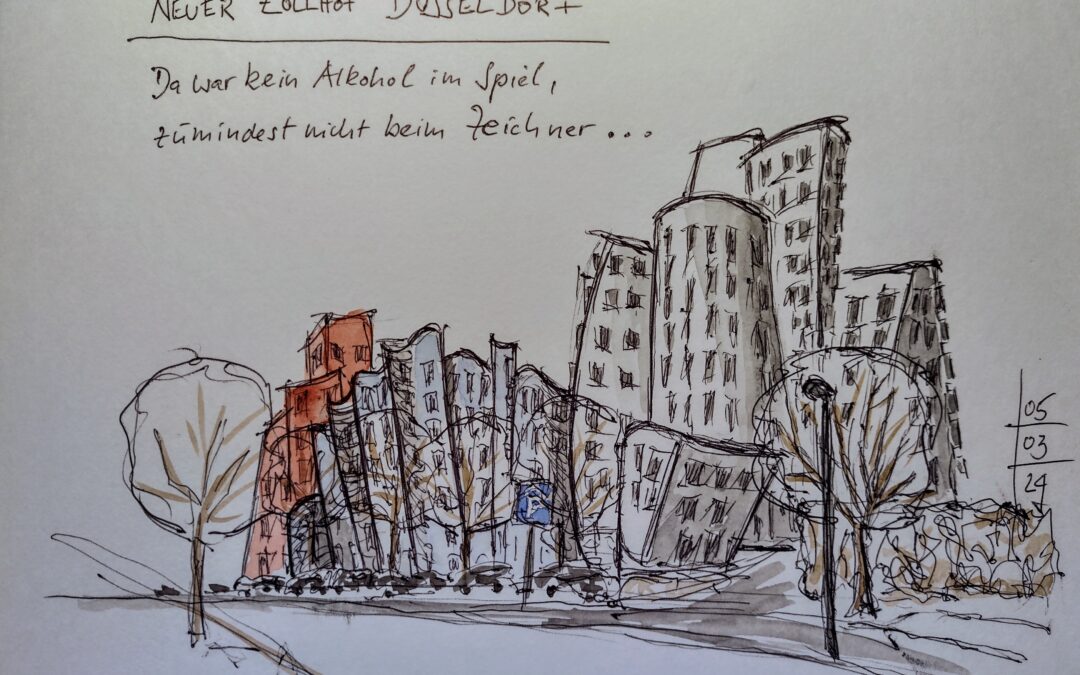 NEUER ZOLLHOF DÜSSELDORF
Da war kein Alkohol im Spiel,
zumindest nicht beim Zeichner...
05
03
24